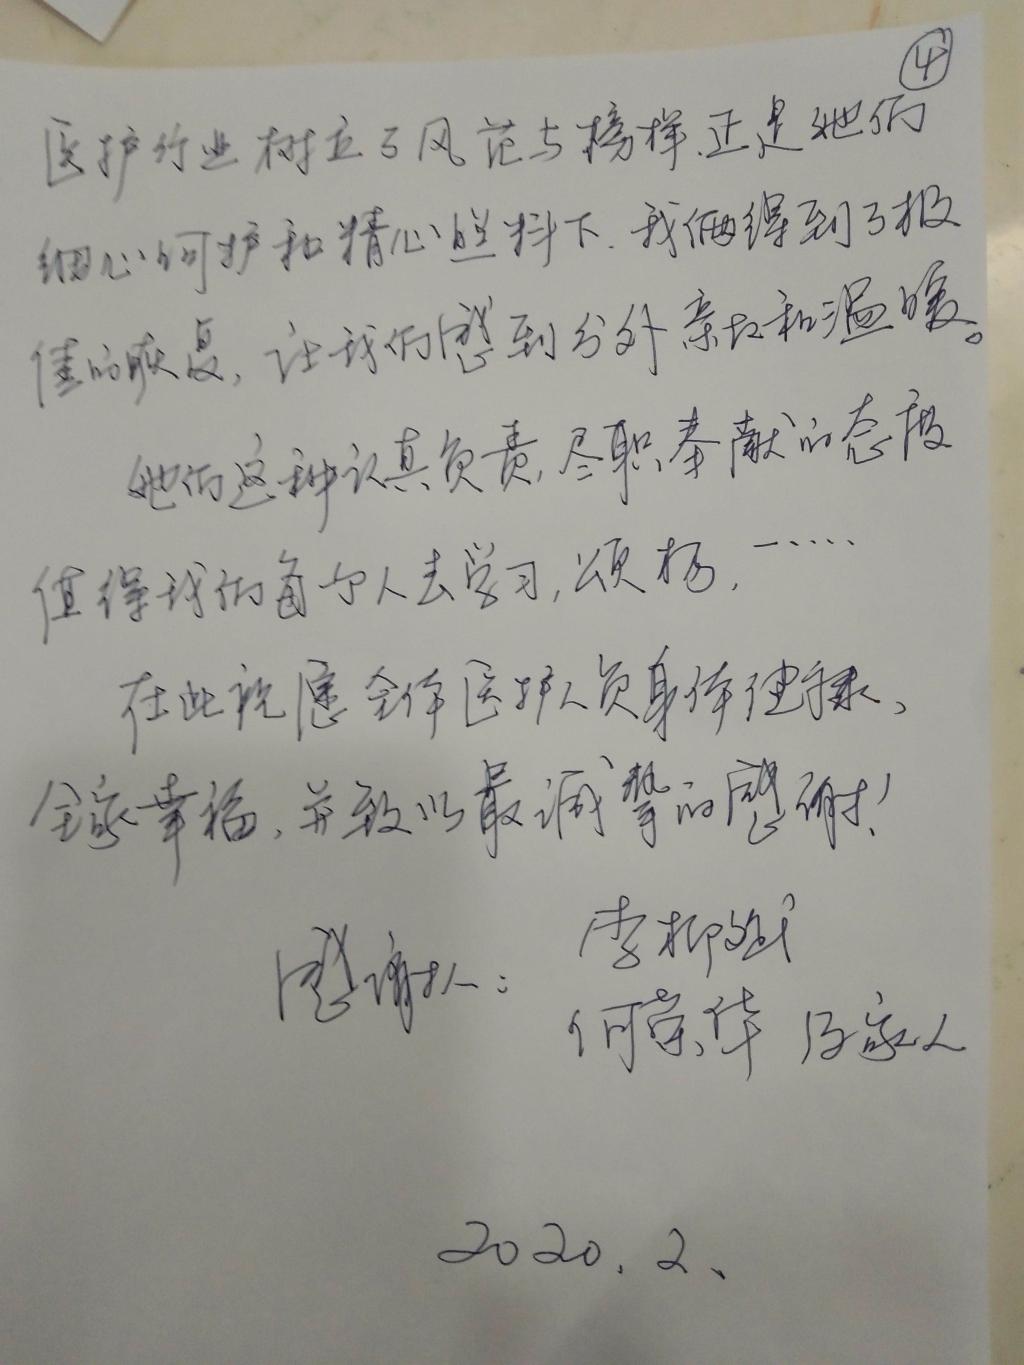 ④
医护行业树立了风范与榜样.正是她们
细心呵护和精心照料下.我俩得到了极
佳的恢复,让我们感到分外亲切和温暖。
她们这种认真负责,尽职奉献的态度
值得我们每个人去学习,颂扬,……
在此祝愿全体医护人员身体健康、
全家幸福,并致以最诚挚的感谢!
感谢人: 李柳斌
何荣华 及家人
2020.2、